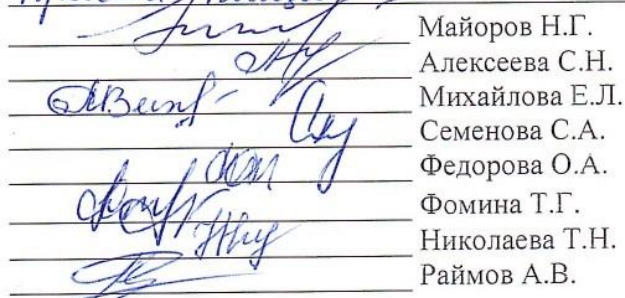 Майоров Н.Г.
Алексеева С.Н.
Михайлова Е.Л.
Семенова С.А.
Федорова О.А.
Фомина Т.Г.
Николаева Т.Н.
Раймов А.В.